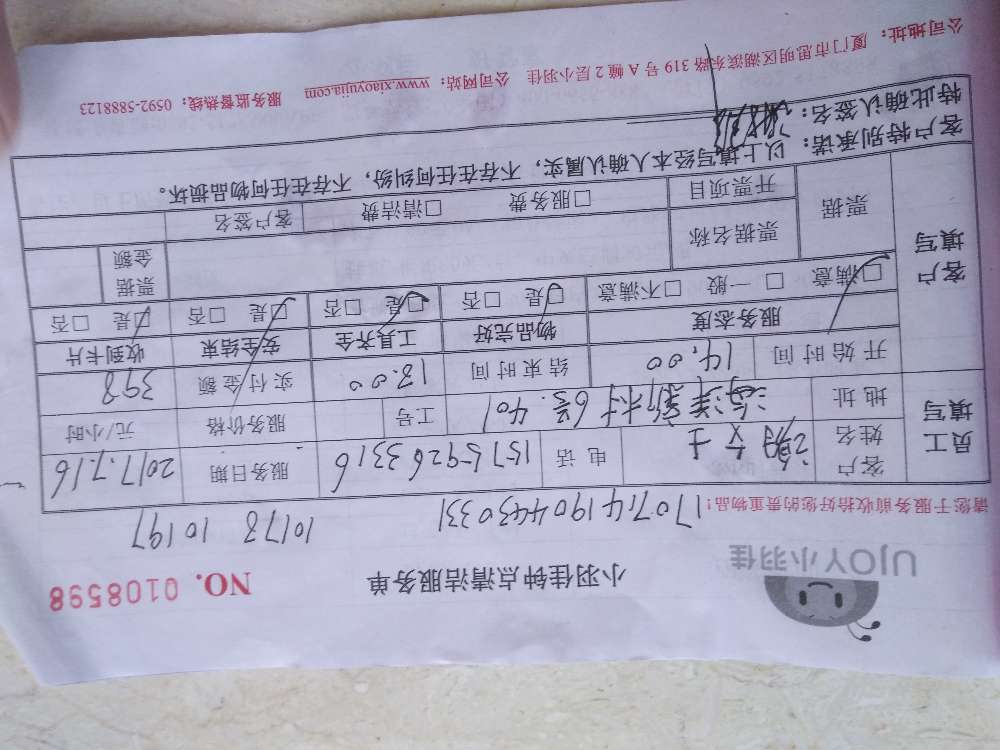 UJOY小羽佳
小羽佳钟点清洁服务单
NO. 0108598
1707141904430331 10178 10197
请您于服务前收拾好您的贵重物品!
员工填写
客户姓名 女士 电话 15759263316 服务日期 2017.7.16
地址 海洋新村6号.401 工号 服务价格 元/小时
开始时间 14.00 结束时间 18.00 实付金额 398
客户填写
服务态度 物品完好 工具齐全 安全结束 收到卡片
□满意 □一般 □不满意 □是 □否 □是 □否 □是 □否 □是 □否
票据 票据名称 票据金额
开票项目 □服务费 □清洁费 客户签名
客户特别承诺:以上填写经本人确认属实,不存在任何纠纷,不存在任何物品损坏。
特此确认签名:
公司地址:厦门市思明区湖滨东路 319 号 A 幢 2 层小羽佳 公司网站:www.xiaoyujia.com 服务监督热线:0592-5888123